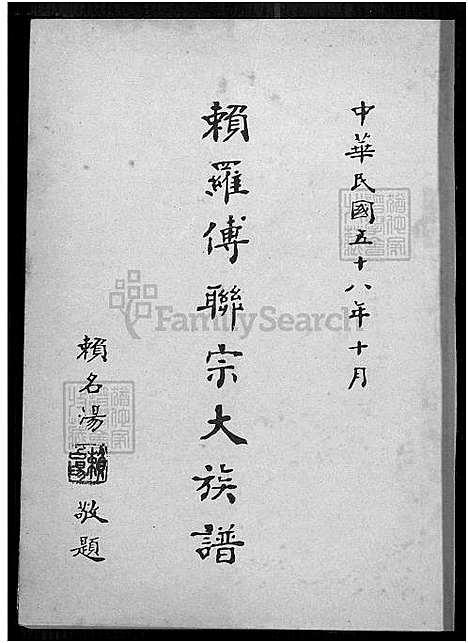 中華民國五十八年十月
賴羅傅聯宗大族譜
賴名湯
敬題
FamilySearch